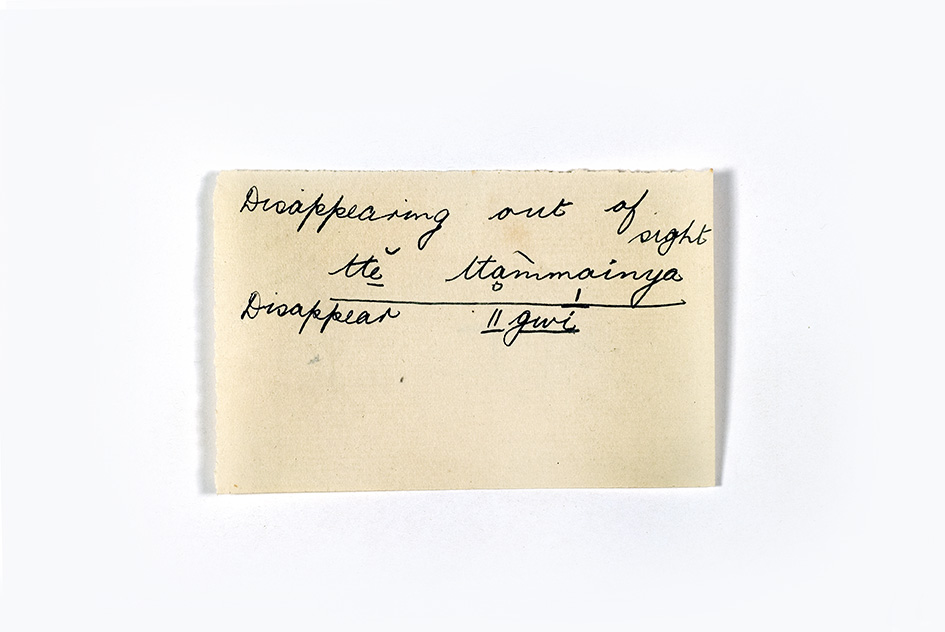 Disappearing out of
sight
ttĕ̱ ttḁm̀mainya
Disappear ǁgwi̱̍